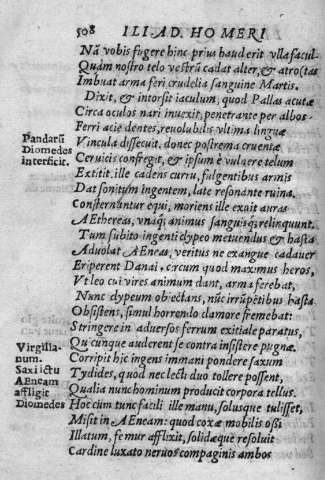 508 ILIAD. HOMERI
Nā vobis fugere hinc prius haud erit vlla facul.
Quàm nostro telo vestrū cadat alter, & atroctas
Imbuat arma feri crudelia sanguine Martis.
Dixit, & intorsit iaculum, quod Pallas acutæ
Circa oculos nari inuexit, penetrante per albos
Ferri acie dentes, reuolubilis vltima linguæ
Pandarū
Diomedes
interficit.
Vincula dissecuit, donec postrema cruentæ
Ceruicis confregit, & ipsum è vulnere telum
Extitit. ille cadens curru, fulgentibus armis
Dat sonitum ingentem, late resonante ruina.
Consternantur equi, moriens ille exit auras
AEthereas, vnàq; animus sanguisq; relinquunt.
Tum subito ingenti clypeo metuendus & hasta
Aduolat AEneas, veritus ne exangue cadauer
Eriperent Danai, circum quod maximus heros,
Vt leo cui vires animum dant, arma ferebat,
Nunc clypeum obiectans, nūc irrūpētibus hasta
Obsistens, simul horrendo clamore fremebat:
Stringere in aduersos ferrum exitiale paratus,
Qui cunque auderent se contra insistere pugnæ.
Virgilia-
num.
Saxi ictu
AEneam
affligit
Diomedes
Corripit hic ingens immani pondere saxum
Tydides, quod nec lecti duo tollere possent,
Qualia nunc hominum producit corpora tellus.
Hoc cùm tunc facili ille manu, solusque tulisset,
Misit in AEneam: quod coxæ mobilis ossi
Illatum, femur afflixit, solidæque resoluit
Cardine luxato neruos compaginis ambos